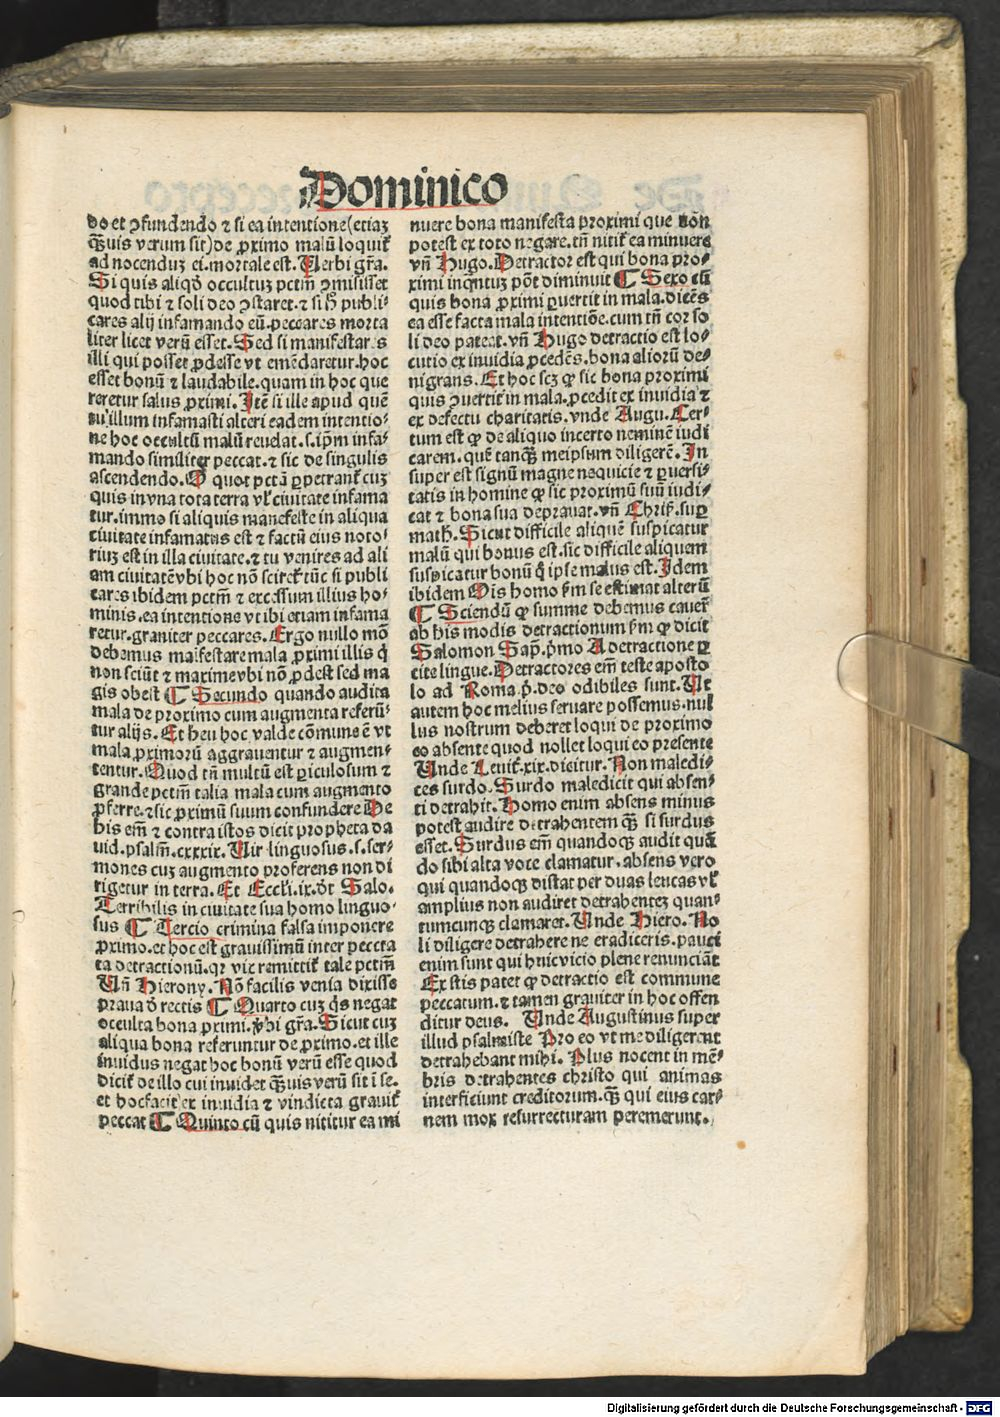 Dominico
do et ꝯfundendo ⁊ si ea intentione (etiaꝫ
ꝙ̃uis verum sit) de ꝓximo malũ loquiť
ad nocenduꝫ ei. mortale est. Uerbi gr̃a.
Si quis aliqđ occultuꝫ pctm̃ ꝯmisisset
quod tibi ⁊ soli deo ꝯstaret. ⁊ si h̊ publi⸗
cares alij infamando eũ. peccares morta
liter licet verũ esset. Sed si manifestares
illi qui posset ꝓdesse vt emẽdaretur. hoc
esset bonũ ⁊ laudabile. quam in hoc que
reretur salus ꝓximi. Itẽ si ille apud quẽ
tu illum infamasti alteri eadem intentio⸗
ne hoc occultũ malũ reuelat. s. ip̃m infa⸗
mando similiter peccat. ⁊ sic de singulis
ascendendo. O quot pctã ꝑpetranť cuꝫ
quis in vna tota terra vł ciuitate infama
tur. immo si aliquis manefeste in aliqua
ciuitate infamatus est ⁊ factũ eius noto⸗
riuꝫ est in illa ciuitate. ⁊ tu venires ad ali
am ciuitatẽ vbi hoc nõ scireť tũc si publi
cares ibidem pctm̃ ⁊ excessum illius ho⸗
minis. ea intentione vt ibi etiam infama
retur. grauiter peccares. Ergo nullo mõ
debemus maifestare mala ꝓximi illis q̇
non sciũt ⁊ maxime vbi nõ ꝓdest sed ma
gis obest ¶ Secundo quando audita
mala de proximo cum augmenta referũ⸗
tur alijs. Et heu hoc valde cõmune ẽ vt
mala ꝓximorũ aggrauentur ⁊ augmen⸗
tentur. Quod tñ multũ est ꝑiculosum ⁊
grande pctm̃ talia mala cum augmento
ꝓferre. ⁊ sic ꝓximũ suum confundere De
his em̃ ⁊ contra istos dicit propheta da
uid. psalm̃. cxxxix. Uir linguosus. s. ser⸗
mones cuꝫ augmento proferens non di
rigetur in terra. Et Eccłi. ix. đt Salo.
Terribilis in ciuitate sua homo linguo⸗
sus ¶ Tercio crimina falsa imponere
ꝓximo. et hoc est grauissimũ inter peccta
ta detractionũ. qꝛ vix remittiť tale pctm̃
Uñ Hierony. Nõ facilis venia dixisse
praua đ rectis ¶ Quarto cuꝫ q̇s negat
occulta bona ꝓximi. v̓bi gr̃a. Sicut cuꝫ
aliqua bona referuntur de ꝓximo. et ille
inuidus negat hoc bonũ verũ esse quod
diciť de illo cui inuidet ꝙ̃uis verũ sit ĩ se.
et hoc facit ex inuidia ⁊ vindicta grauiť
peccat ¶ Quinto cũ quis nititur ea mi
nuere bona manifesta proximi que nõn
potest ex toto negare. tñ nitiť ea minuere
vñ Hugo. Detractor est qui bona pro⸗
ximi inq̃ntuꝫ põt diminuit ¶ Sexo cũ
quis bona ꝓximi ꝑuertit in mala. dicẽs
ea esse facta mala intentiõe. cum tñ cor so
li deo pateat. vñ Hugo detractio est lo⸗
cutio ex inuidia ꝓcedẽs. bona aliorũ de⸗
nigrans. Et hoc scꝫ ꝙ sic bona proximi
quis ꝯuertit in mala. ꝓcedit ex inuidia ⁊
ex defectu charitatis. vnde Augu. Cer⸗
tum est ꝙ de aliquo incerto neminẽ iudi
carem. quẽ tanꝙ̃ meipsum diligerẽ. In
super est signũ magne nequicie ⁊ ꝑuersi⸗
tatis in homine ꝙ sic proximũ suũ iudi⸗
cat ⁊ bona sua deprauat. vñ Chrip̃. suꝑ
math̃. Sicut difficile aliquẽ suspicatur
malũ qui bonus est. sic difficile aliquem
suspicatur bonũ q̇ ipse malus est. Idem
ibidem Ois homo ẜm se estimat alterũ
¶ Sciendũ ꝙ summe debemus cauer̃
ab his modis detractionum ẜm ꝙ dicit
Salomon Sap̃. p̃mo A detractione ꝑ
cite lingue. Detractores em̃ teste aposto
lo ad Roma. p̃. deo odibiles sunt. Ut
autem hoc melius seruare possemus. nul
lus nostrum deberet loqui de proximo
eo absente quod nollet loqui eo presente
Unde Leuiť. xix. dicitur. Non maledi⸗
ces surdo. Surdo maledicit qui absen⸗
ti detrahit. Homo enim absens minus
potest audire detrahentem ꝙ̃ si surdus
esset. Surdus em̃ quandoqꝫ audit quã
do sibi alta voce clamatur. absens vero
qui quandoqꝫ distat per duas leucas vł
amplius non audiret detrahenteꝫ quan⸗
tumcunqꝫ clamaret. Unde Hiero. No
li diligere detrahere ne eradiceris. pauci
enim sunt qui huic vicio plene renunciãt
Ex istis patet ꝙ detractio est commune
peccatum. ⁊ tamen grauiter in hoc offen
ditur deus. Unde Augustinus super
illud psalmiste Pro eo vt me diligerent
detrahebant mihi. Plus nocent in mẽ⸗
bris detrahentes christo qui animas
interficiunt creditorum. ꝙ̃ qui eius car⸗
nem mox resurrecturam peremerunt.
Digitalisierung gefördert durch die Deutsche Forschungsgemeinschaft - DFG